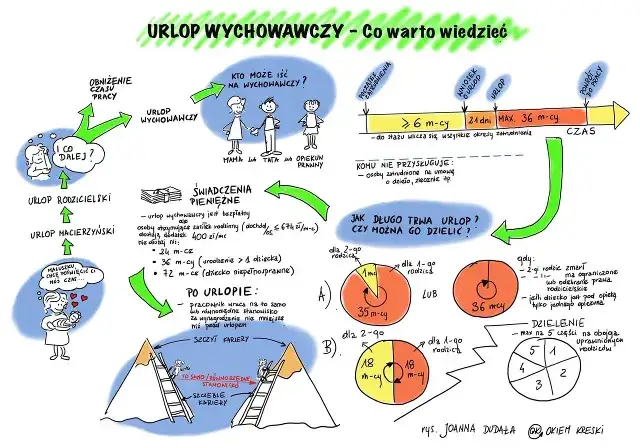 URLOP WYCHOWAWCZY - Co warto wiedzieć
OBNIŻENIE
CZASU
PRACY
URLOP
WYCHOWAWCZY
I CO
DALEJ?
URLOP RODZICIELSKI
URLOP MACIERZYŃSKI
MALUSZKU,
CHCĘ POŚWIĘCIĆ CI
MÓJ CZAS...
KTO MOŻE IŚĆ
NA WYCHOWAWCZY?
MAMA lub TATA lub OPIEKUN
PRAWNY
POCZĄTEK
ZATRUDNIENIA
WNIOSEK
O URLOP
URLOP
POWRÓT
DO PRACY
≥ 6 m-cy
21 dni
MAX. 36 m-cy
CZAS
- do stażu wlicza się wszystkie okresy zatrudnienia
KOMU NIE PRZYSŁUGUJE:
- osoby zatrudnione na umowę
o dzieło, zlecenie itp.
ŚWIADCZENIA
PIENIĘŻNE
- urlop wychowawczy jest bezpłatny
ale
osoby otrzymujące zasiłek rodzinny (dochód/os ≤ 674 zł/m-c)
dostają dodatek 400 zł/mc
nie dłużej niż:
• 24 m-ce
• 36 m-cy (urodzenie > 1 dziecka)
• 72 m-ce (dziecko niepełnosprawne)
JAK DŁUGO TRWA URLOP?
CZY MOŻNA GO DZIELIĆ?
A).
dla 2-go
rodzica
1 mc
dla 1-go
rodzica
35 m-cy
LUB
36 m-cy
gdy:
- 2-gi rodzic zmarł
ma ograniczone
lub odebrane prawa
rodzicielskie
- jeśli dziecko jest pod opieką
tylko jednego opiekuna
B).
dla 2-go
rodzica
dla 1-go
rodzica
18
m-cy
18
m-cy
DZIELENIE
- max na 5 części na obojga
uprawnionych
rodziców
5
1
4
3
2
PO URLOPIE:
- pracownik wraca na to samo
lub równorzędne stanowisko
za wynagrodzenie nie mniejsze
niż przed urlopem
SZCZYT KARIERY
TO SAMO / RÓWNORZĘDNE
STANOWISKO
SZCZEBLE
KARIERY
rys. JOANNA DUDAŁA
OKIEM KRESKI